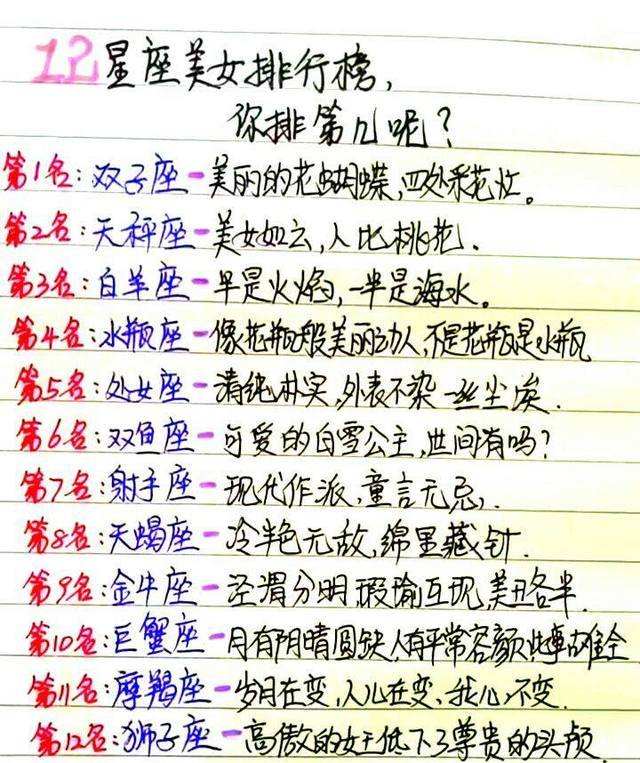 12星座美女排行榜,
你排第几呢?
第1名:双子座-美丽的花蝴蝶,四处采花忙。
第2名:天秤座-美女如云,人比桃花.
第3名:白羊座-半是火焰,一半是海水。
第4名:水瓶座-像花瓶般美丽动人,不是花瓶是水瓶
第5名:处女座-清纯朴实,外表不染一丝尘埃.
第6名:双鱼座-可爱的白雪公主,世间有吗?
第7名:射手座-现代作派,童言无忌,.
第8名:天蝎座-冷艳无敌,绵里藏针.
第9名:金牛座-泾渭分明,瑕瑜互现,美丑各半.
第10名:巨蟹座-月有阴晴圆缺,人有平常容颜,此事古难全
第11名:摩羯座-岁月在变,人儿在变,我心不变.
第12名:狮子座-高傲的女王低下了尊贵的头颅.